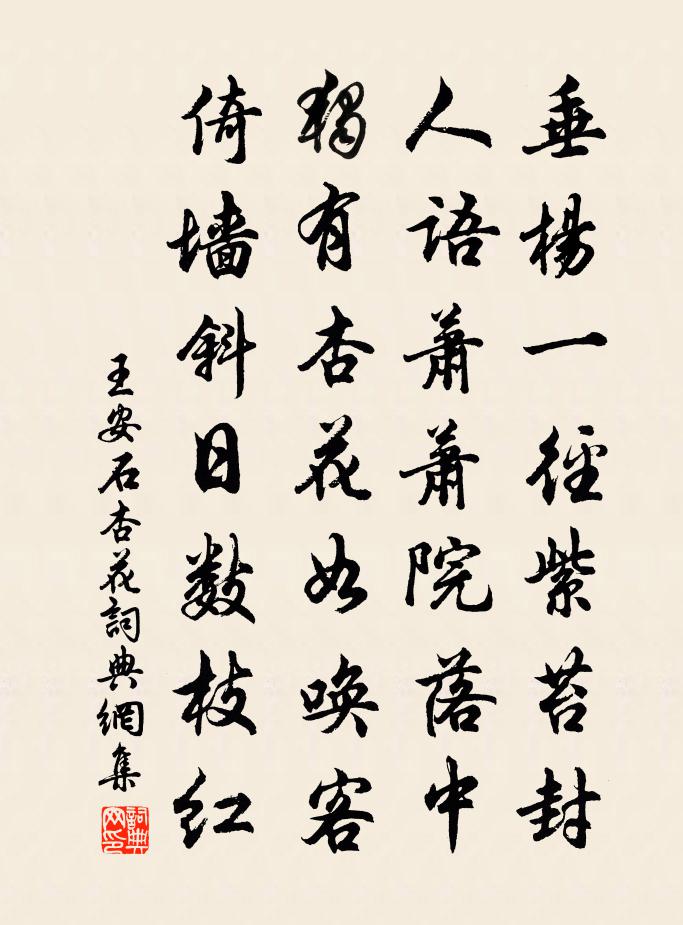 垂楊一徑紫苔封
人語蕭蕭院落中
獨有杏花如喚客
倚墙斜日數枝红
王安石杏花詞典網集
詞典網印